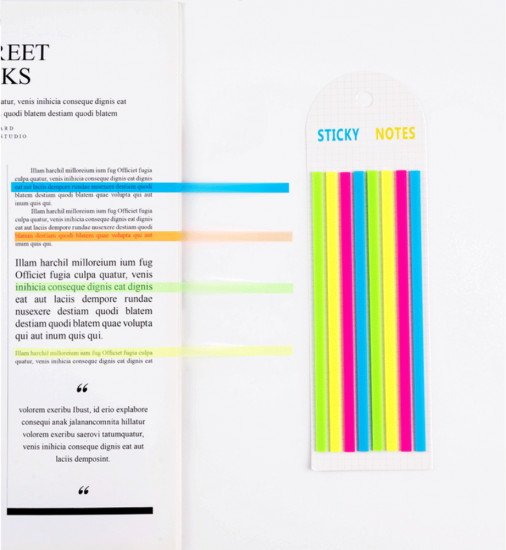 REET
KS
atur, venis inihicia conseque dignis eat
quodi blatem destiam quodi blatem
ARD
STUDIO
Illam harchil milloreium ium fug Officiet fugia
culpa quatur, venis inihicia conseque dignis eat dignis
eat aut laciis dempore rundae nusexere destiam quodi
blatem destiam quodi blatem quae volupta qui aut
inum quis qui.
Illam harchil milloreium ium fug Officiet fugia
culpa quatur, venis inihicia conseque dignis eat dignis
eat aut laciis dempore rundae nusexere destiam quodi
blatem destiam quodi blatem quae volupta qui aut
inum quis qui.
Illam harchil milloreium ium fug
Officiet fugia culpa quatur, venis
inihicia conseque dignis eat dignis
eat aut laciis dempore rundae
nusexere destiam quodi blatem
destiam quodi blatem quae volupta
qui aut inum quis qui.
Illam harchil milloreium ium fug Officiet fugia culpa
quatur, venis inihicia conseque dignis eat dignis eat
“
volorem exeribu Ibust, id erio explabore
consequi anak jalanancomnita hillatur
volorem exeribu saerovi tatumquatur,
venis inihicia conseque dignis eat aut
laciis demposint.
“
STICKY NOTES